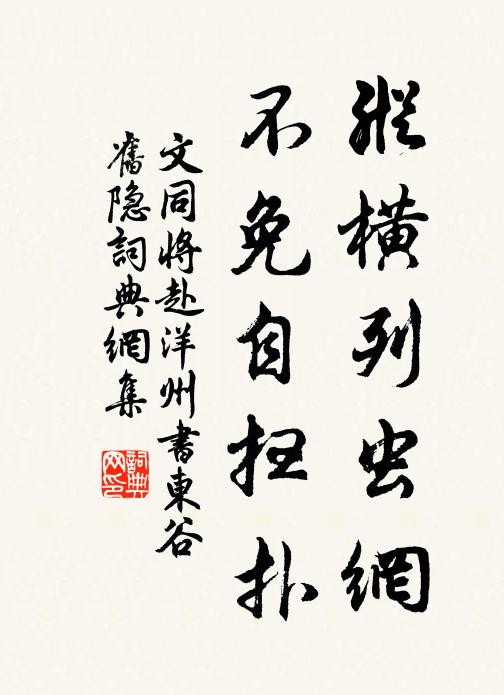 縱橫列虫網
不免自扫扑
文同將赴洋州書東谷
舊隐詞典網集
詞典网印